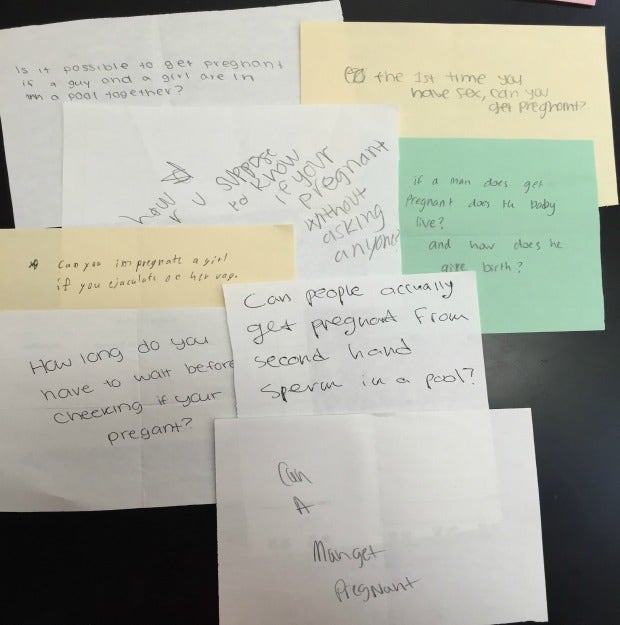 Is it possible to get pregnant
if a guy and a girl are in
a pool together?
the 1st time you
have sex, can you
get pregnant?
how
r u suppose
to know
if your
pregnant
without
asking
anyone?
if a man does get
pregnant does the baby
live?
and how does he
give birth?
Can you impregnate a girl
if you ejaculate on her vag.
Can people accually
get pregnant from
second hand
sperm in a pool?
How long do you
have to wait before
checking if your
pregant?
Can
A
Man get
Pregnant